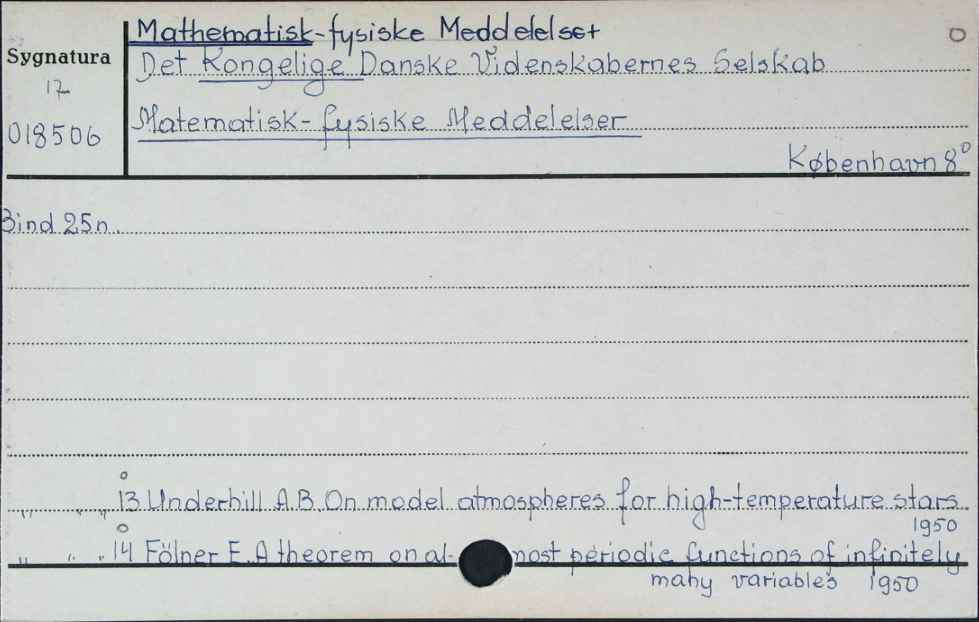 Mathematisk-fysiske Meddelelser
Sygnatura
Det Kongelige Danske Videnskabernes Selskab
17
Matematisk-fysiske Meddelelser
018506
København 8°
Bind 25 n.
" " " 13 Underhill A.B. On model atmospheres for high-temperature stars
1950
" " " 14 Fölner E. A theorem on al-most periodic functions of infinitely
many variables 1950